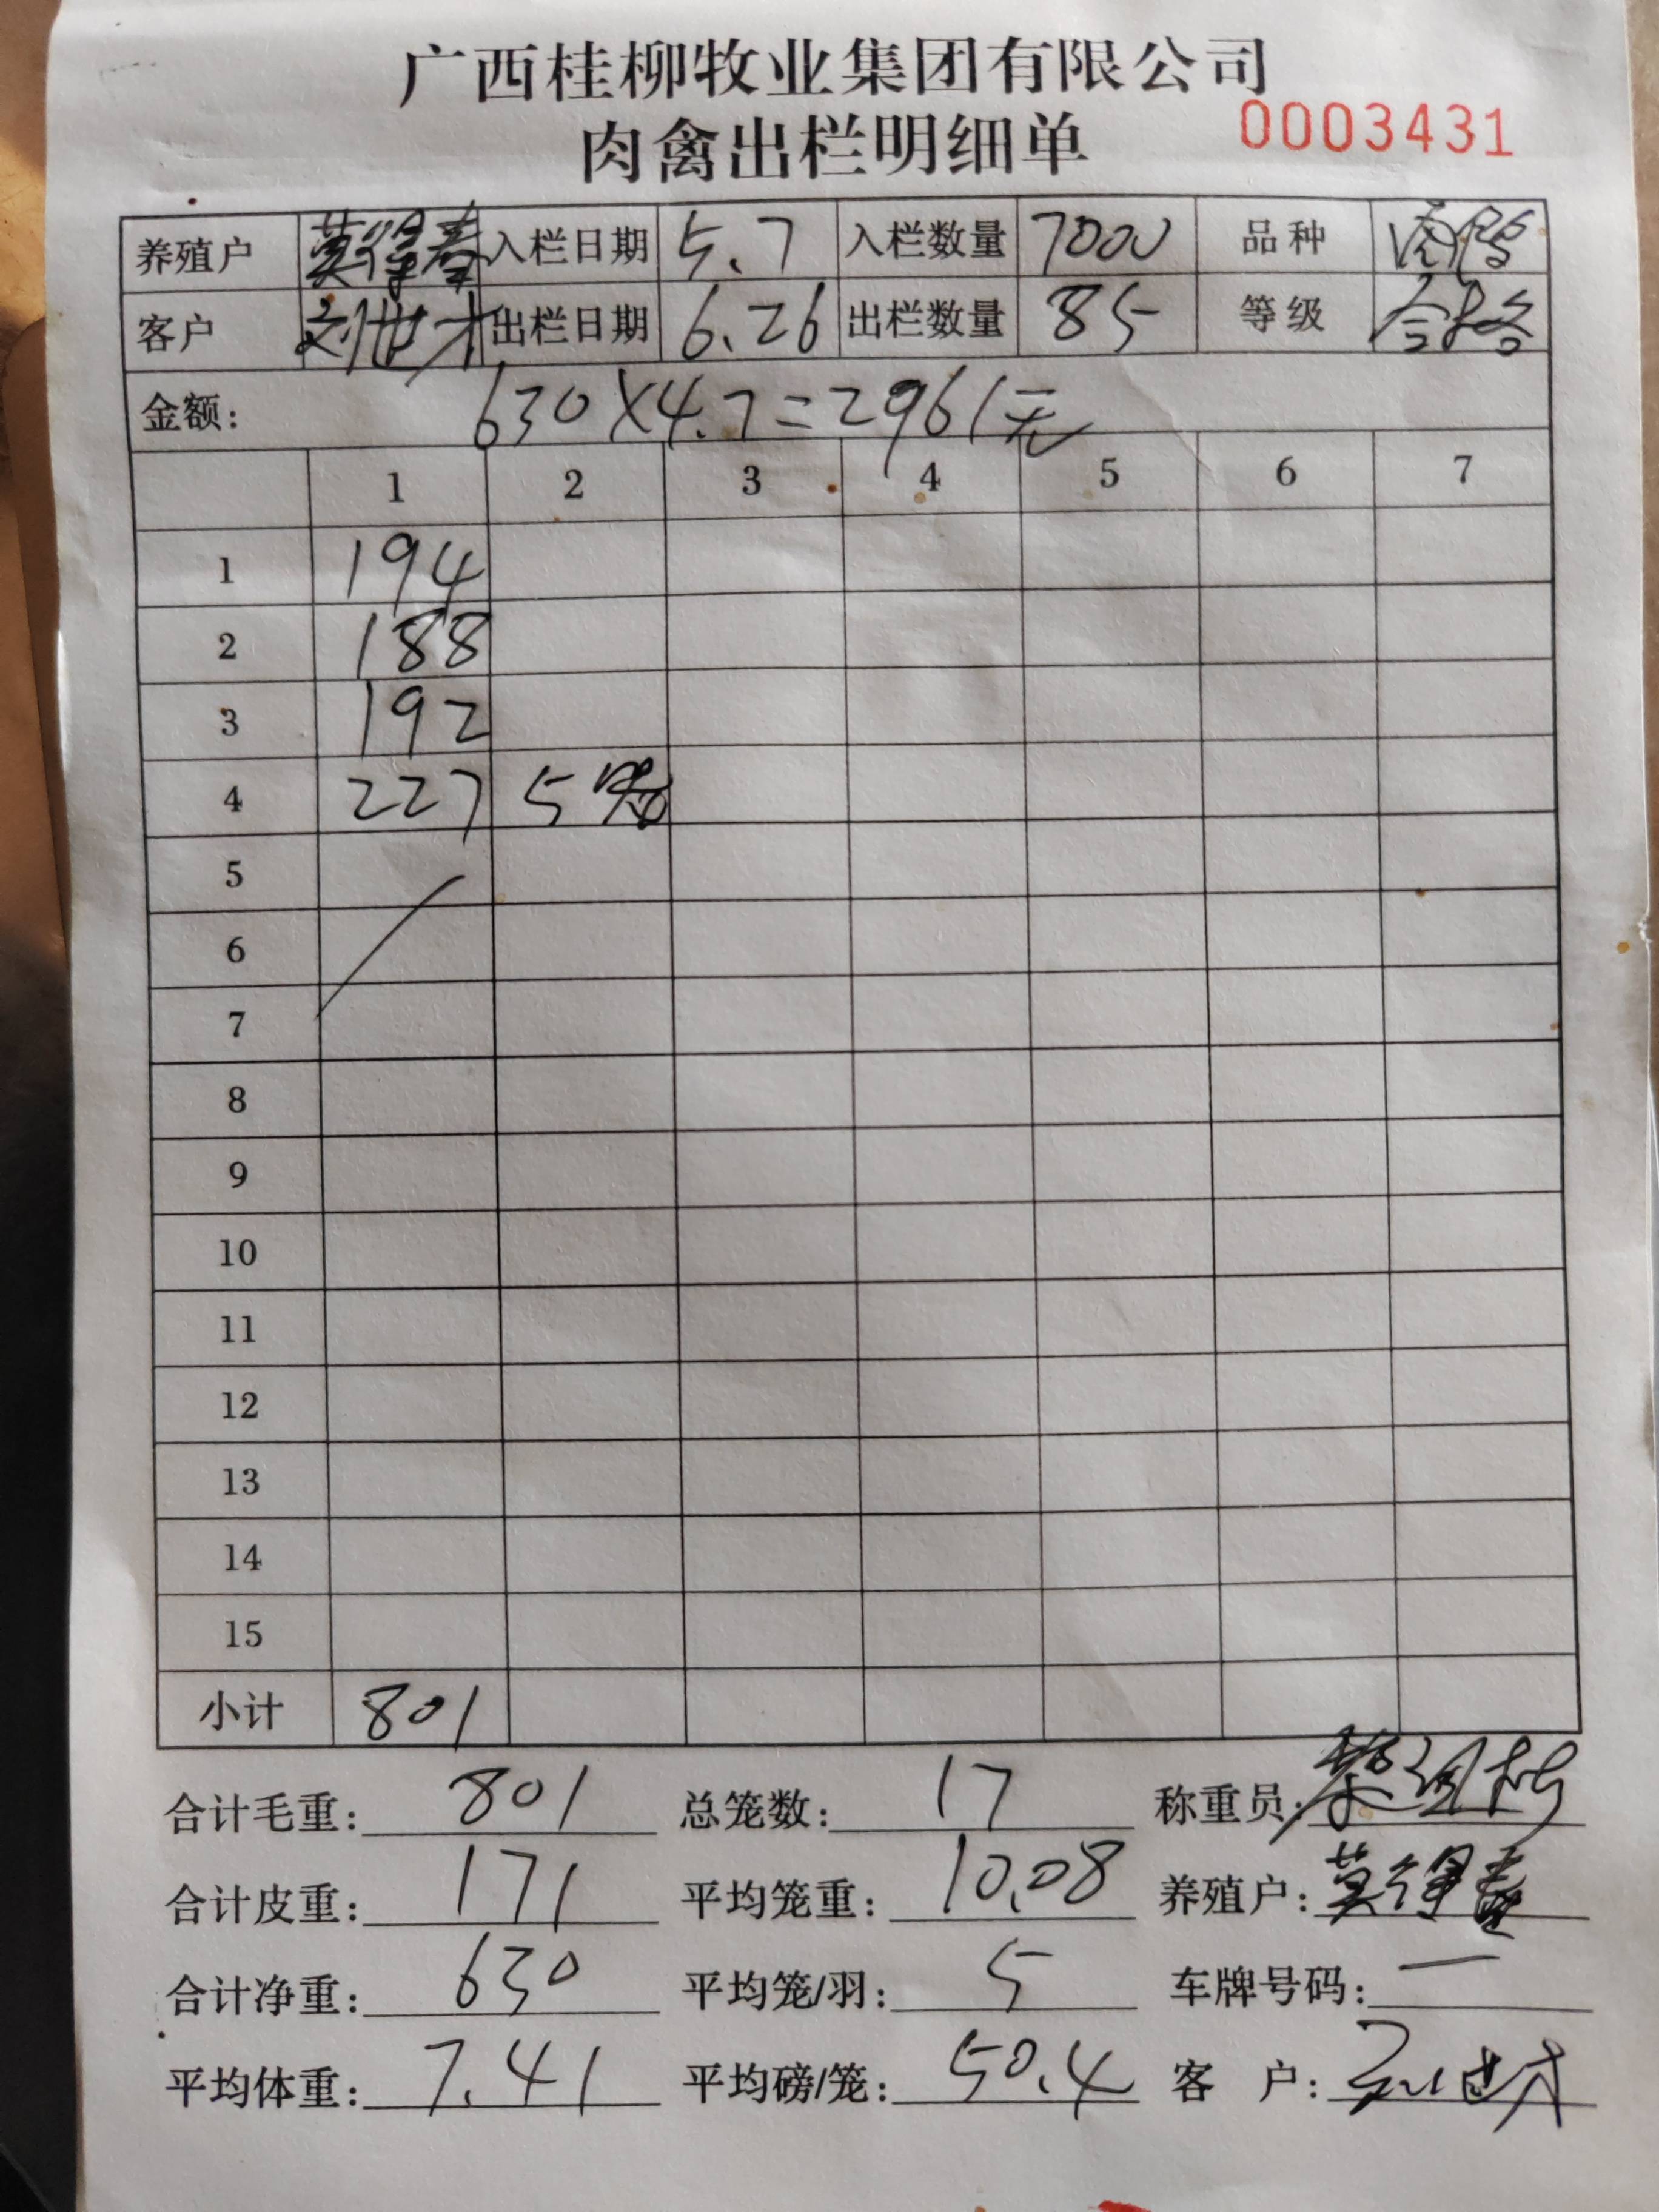 广西桂柳牧业集团有限公司
肉禽出栏明细单 0003431
养殖户 莫得春 入栏日期 5.7 入栏数量 7000 品种
客户 刘世才 出栏日期 6.26 出栏数量 85 等级 合格
金额: 630×4.7=2961元
1 2 3 4 5 6 7
1 194
2 188
3 192
4 227 5笼
5
6
7
8
9
10
11
12
13
14
15
小计 801
合计毛重: 801 总笼数: 17 称重员:
合计皮重: 171 平均笼重: 10.08 养殖户: 莫得春
合计净重: 630 平均笼/羽: 5 车牌号码: 一
平均体重: 7.41 平均磅/笼: 50.4 客 户: 刘世才